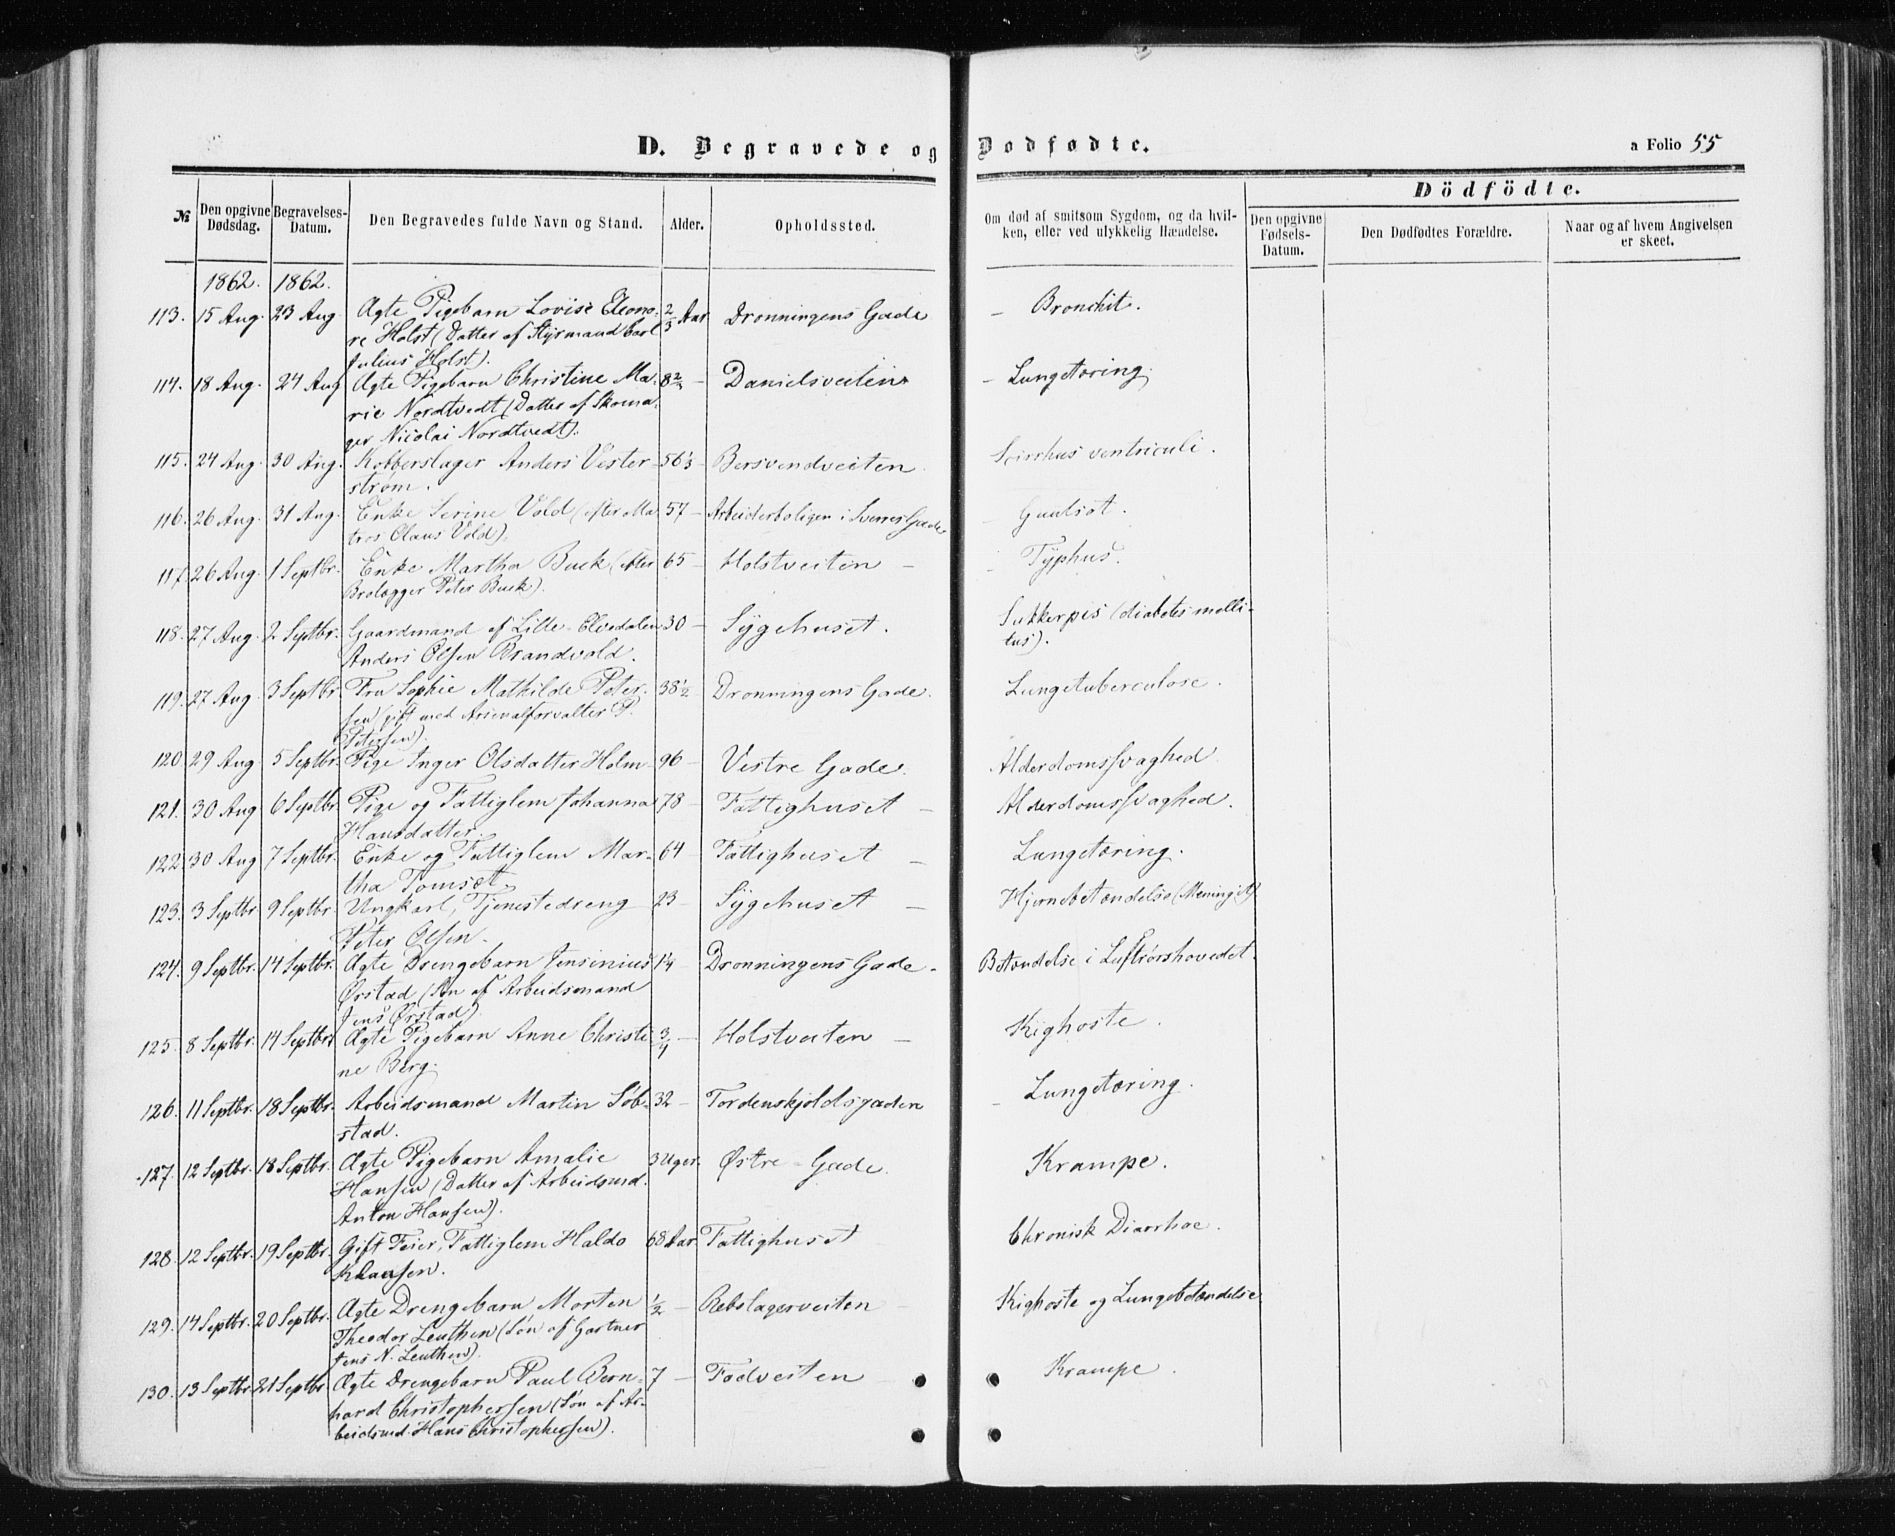 D. Begravede og Dødfødte.
a Folio 55
Dödfödte.
№ Den opgivne Dødsdag. Begravelses-Datum. Den Begravedes fulde Navn og Stand. Alder. Opholdssted. Om død af smitsom Sygdom, og da hvil-
ken, eller ved ulykkelig Hændelse. Den opgivne Fødsels-Datum. Den Dødfødtes Forældre. Naar og af hvem Angivelsen er skeet.
1862. 1862.
113. 15 Aug. 23 Aug Ægte Pigebarn Lovise Eleono- 2/3 Aar Dronningens Gade – Bronchit.
re Holst (Datter af Styrmand Carl
Julius Holst).
114. 18 Aug. 24 Aug Ægte Pigebarn Christine Ma- 8 2/3 – Danielsveiten – Lungetæring.
rie Nordtvedt (Datter af Skoma-
ger Nicolai Nordtvedt).
115. 24 Aug. 30 Aug. Kobberslager Anders Vester- 56 1/3 – Bersvendveiten. Scirrhus ventriculi.
strøm.
116. 26 Aug. 31 Aug. Enke Serine Vold (efter Ma 57 – Arbeiderboligen i Sverres Gade – Guulsot.
tros Claus Vold).
117. 26 Aug. 1 Septbr. Enke Martha Buck (efter 65 – Holstveiten – Typhus.
Brolægger Peter Buck).
118. 27 Aug. 2 Septbr. Gaardmand af Lille-Elvedalen 30 – Sygehuset. Sukkerpis (diabetes melli-
Anders Olsen Brandvold. tus).
119. 27 Aug. 3 Septbr. Fru Sophie Mathilde Peter- 38 1/2 – Dronningens Gade. Lungetuberculose.
sen (gift med Arsenalforvalter P.
Petersen).
120. 29 Aug 5 Septbr. Pige Inger Olsdatter Holm – 96 – Vestre Gade. Alderdomssvaghed
121. 30 Aug 6 Septbr. Pige og Fattiglem Johanna 78 – Fattighuset – Alderdomssvaghed.
Hansdatter.
122. 30 Aug 7 Septbr. Enke og Fattiglem Mar- 64 – Fattighuset – Lungetæring.
tha Tomset.
123. 3 Septbr 9 Septbr. Ungkarl, Tjenestedreng 23 – Sygehuset – Hjernebetændelse (Meningit)
Peter Olsen.
124. 9 Septbr. 14 Septbr. Ægte Drengebarn Jensinius 1 1/4 – Dronningens Gade. Betændelse i Luftrørshovedet.
Ørstad (Søn af Arbeidsmand
Jens Ørstad)
125. 8 Septbr. 14 Septbr. Ægte Pigebarn Anne Christi 3/4 – Holstveiten – Kighoste.
ne Berg.
126. 11 Septbr. 18 Septbr. Arbeidsmand Martin Søb- 32 – Tordenskjoldsgaden – Lungetæring.
stad.
127. 12 Septbr. 18 Septbr. Ægte Pigebarn Amalie 3 Uger. Østre-Gade. Krampe.
Hansen (Datter af Arbeidsmd.
Anton Hansen).
128. 12 Septbr. 19 Septbr. Gift Feier, Fattiglem Haldo 68 Aar. Fattighuset Chronisk Diarrhoe.
Klausen.
129. 14 Septbr. 20 Septbr. Ægte Drengebarn Morten 1/2 – Rebslagerveiten – Kighoste og Lungebetændelse
Theodor Leuthen (Søn af Gartner
Jens N. Leuthen).
130. 13 Septbr. 21 Septbr Ægte Drengebarn Paul Bern- 7 – Fodveiten Krampe.
hard Christophersen (Søn af Ar-
beidsmd. Hans Christophersen).